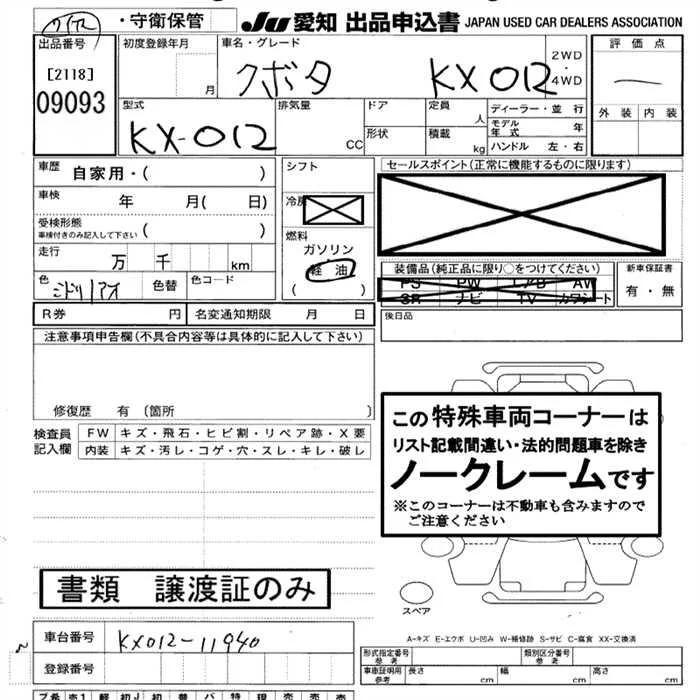 ・守衛保管
Ju 愛知 出品申込書 JAPAN USED CAR DEALERS ASSOCIATION
出品番号 初度登録年月 車名・グレード 評価点
[2118]
09093
月
クボタ KX 012
2WD
・
4WD
外装 内装
型式 排気量 ドア 定員 人 ディーラー・並行
KX-012
CC
形状 積載 kg
モデル年式 年
ハンドル 左・右
車歴 自家用・( )
シフト
セールスポイント(正常に機能するものに限ります)
車検 年 月( 日)
冷房
受検形態
車検付きのみ記入して下さい ( )
燃料
ガソリン
軽油
( )
走行 万 千 km
色 ミドリ/アオ 色替 色コード
装備品(純正品に限り○をつけてください)
PS PW エアB AW
SR ナビ TV カワシート
新車保証書
有・無
R券 円 名変通知期限 月 日
後日品
注意事項申告欄(不具合内容等は具体的に記入して下さい)
修復歴 有 〔箇所 〕
検査員記入欄
FW キズ・飛石・ヒビ割・リペア跡・X要
内装 キズ・汚レ・コゲ・穴・スレ・キレ・破レ
この特殊車両コーナーは
リスト記載間違い・法的問題車を除き
ノークレームです
※このコーナーは不動車も含みますので
ご注意ください
書類 譲渡証のみ
スペア
車台番号 KX012-11940
登録番号
A-キズ E-エクボ U-凹み W-補修跡 S-サビ C-腐食 XX-交換済
形式指定番号 参考 類別区分番号 参考
車庫証明用 参考 長さ cm 幅 cm 高さ cm